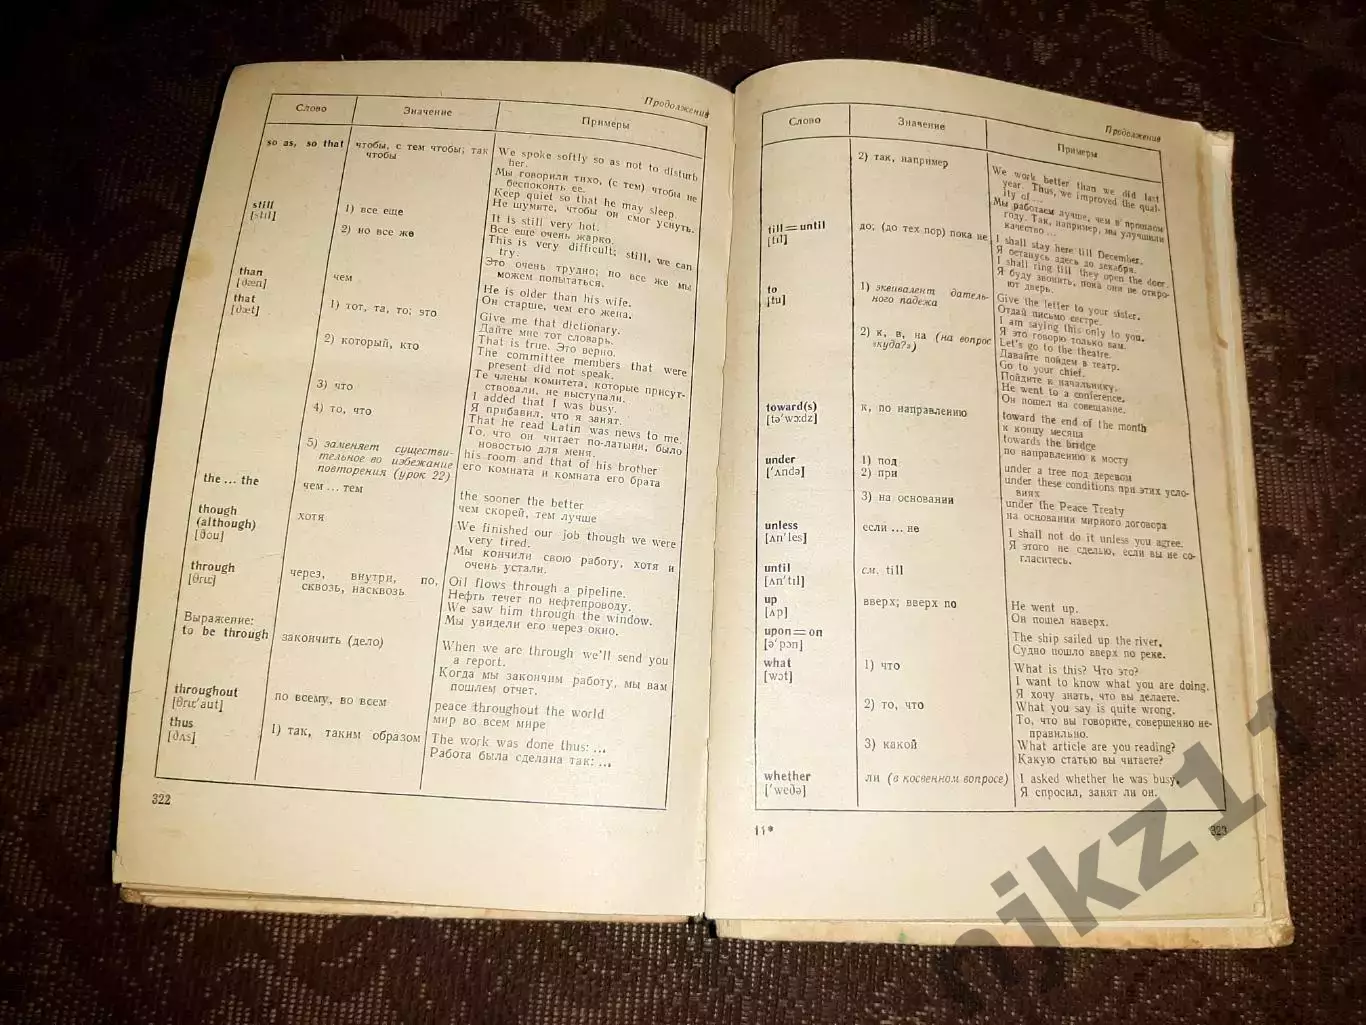 Продолжение
Слово Значение Примеры
so as, so that чтобы, с тем чтобы; так We spoke softly so as not to disturb
чтобы her.
Мы говорили тихо, (с тем) чтобы не
беспокоить ее.
Keep quiet so that he may sleep.
Не шумите, чтобы он смог уснуть.
still 1) все еще It is still very hot.
[stıl] Все еще очень жарко.
2) но все же This is very difficult; still, we can
try.
Это очень трудно; но все же мы
можем попытаться.
than чем He is older than his wife.
[ðæn] Он старше, чем его жена.
that 1) тот, та, то; это Give me that dictionary.
[ðæt] Дайте мне тот словарь.
That is true. Это верно.
2) который, кто The committee members that were
present did not speak.
Те члены комитета, которые присут-
ствовали, не выступали.
3) что I added that I was busy.
Я прибавил, что я занят.
4) то, что That he read Latin was news to me.
То, что он читает по-латыни, было
новостью для меня.
5) заменяет существи- his room and that of his brother
тельное во избежание его комната и комната его брата
повторения (урок 22)
the ... the чем ... тем the sooner the better
чем скорей, тем лучше
though хотя We finished our job though we were
(although) very tired.
[ðou] Мы кончили свою работу, хотя и
очень устали.
through через, внутри, по, Oil flows through a pipeline.
[θru:] сквозь, насквозь Нефть течет по нефтепроводу.
We saw him through the window.
Мы увидели его через окно.
Выражение:
to be through закончить (дело) When we are through we'll send you
a report.
Когда мы закончим работу, мы вам
пошлем отчет.
throughout по всему, во всем peace throughout the world
[θru:'aut] мир во всем мире
thus 1) так, таким образом The work was done thus: ...
[ðʌs] Работа была сделана так: ...
322
Продолжение
Слово Значение Примеры
2) так, например We work better than we did last
year. Thus, we improved the qual-
ity of ...
Мы работаем лучше, чем в прошлом
году. Так, например, мы улучшили
качество ...
till = until до; (до тех пор) пока не I shall stay here till December.
[tıl] Я останусь здесь до декабря.
I shall ring till they open the door.
Я буду звонить, пока они не откро-
ют дверь.
to 1) эквивалент датель- Give the letter to your sister.
[tu] ного падежа Отдай письмо сестре.
I am saying this only to you.
Я это говорю только вам.
2) к, в, на (на вопрос Let's go to the theatre.
«куда?») Давайте пойдем в театр.
Go to your chief.
Пойдите к начальнику.
He went to a conference.
Он пошел на совещание.
toward(s) к, по направлению toward the end of the month
[tə'wɔ:dz] к концу месяца
towards the bridge
по направлению к мосту
under 1) под under a tree под деревом
['ʌndə] 2) при under these conditions при этих усло-
виях
3) на основании under the Peace Treaty
на основании мирного договора
unless если ... не I shall not do it unless you agree.
[ʌn'les] Я этого не сделаю, если вы не со-
гласитесь.
until см. till
[ʌn'tıl]
up вверх; вверх по He went up.
[ʌp] Он пошел наверх.
upon = on The ship sailed up the river.
[ə'pɔn] Судно пошло вверх по реке.
what 1) что What is this? Что это?
[wɔt] I want to know what you are doing.
Я хочу знать, что вы делаете.
2) то, что What you say is quite wrong.
То, что вы говорите, совершенно не-
правильно.
3) какой What article are you reading?
Какую статью вы читаете?
whether ли (в косвенном вопросе) I asked whether he was busy.
['weðə] Я спросил, занят ли он.
11*
323
njkz11